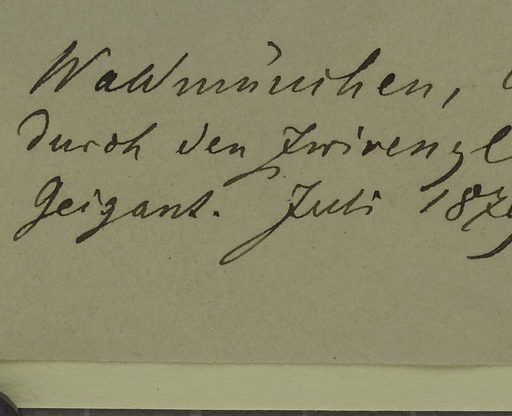 Waldmünchen,
durch den Zwirenzl
Geigant. Juli 187